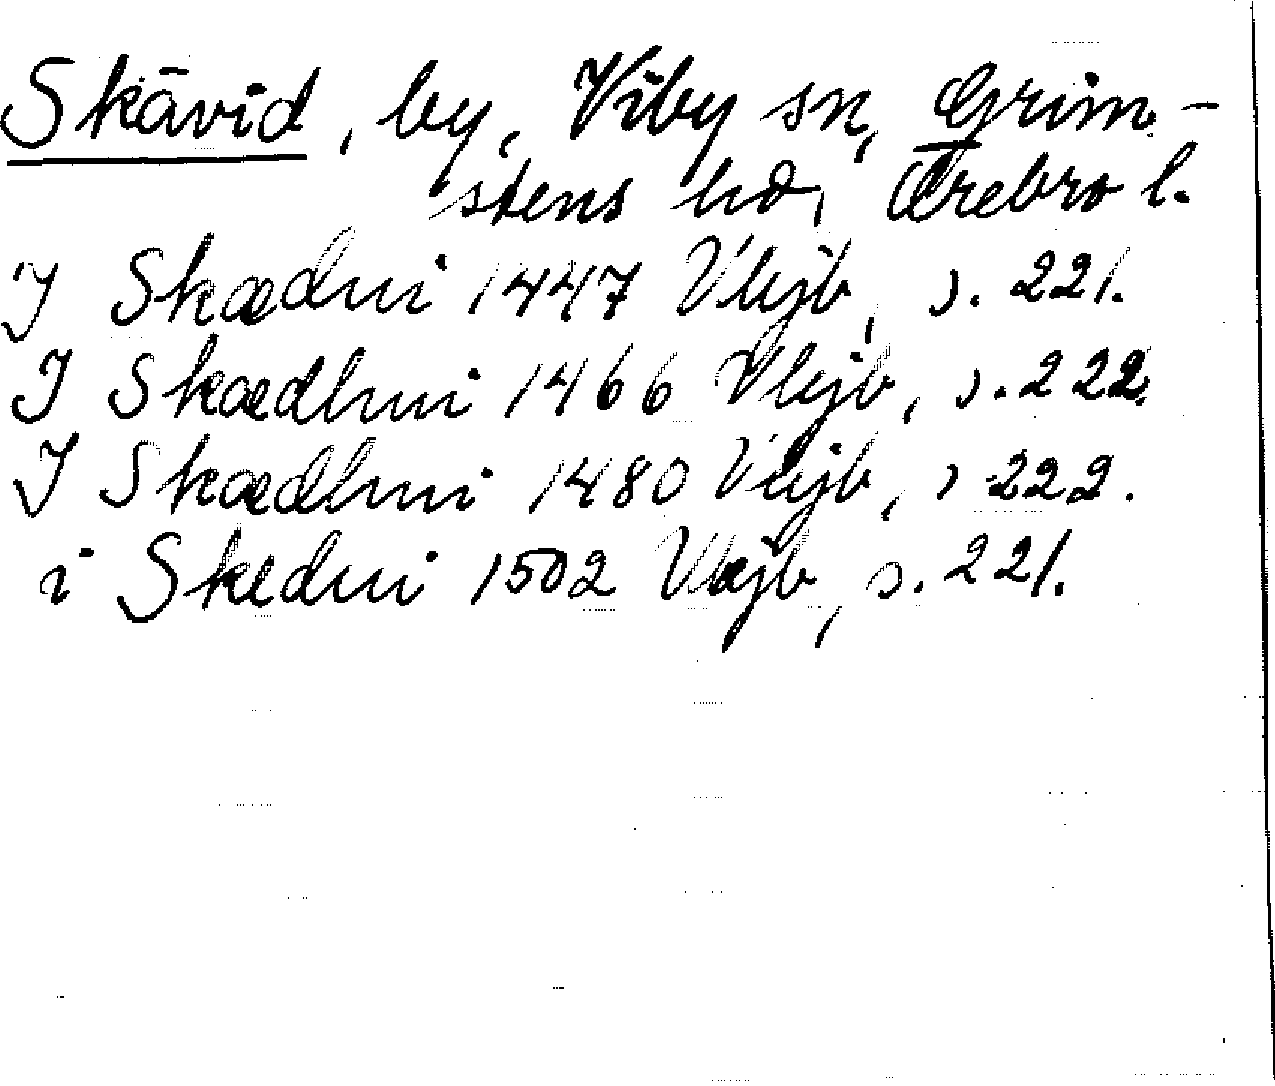 Skävid, by, Viby sn, Grim-
stens hd, Örebro l.
J Skædui 1447 Vlejb, s. 221.
J Skædhui 1466 Vlejb, s. 222.
J Skædhui 1480 Vlejb, s 222.
i Skedui 1502 Vlejb, s. 221.